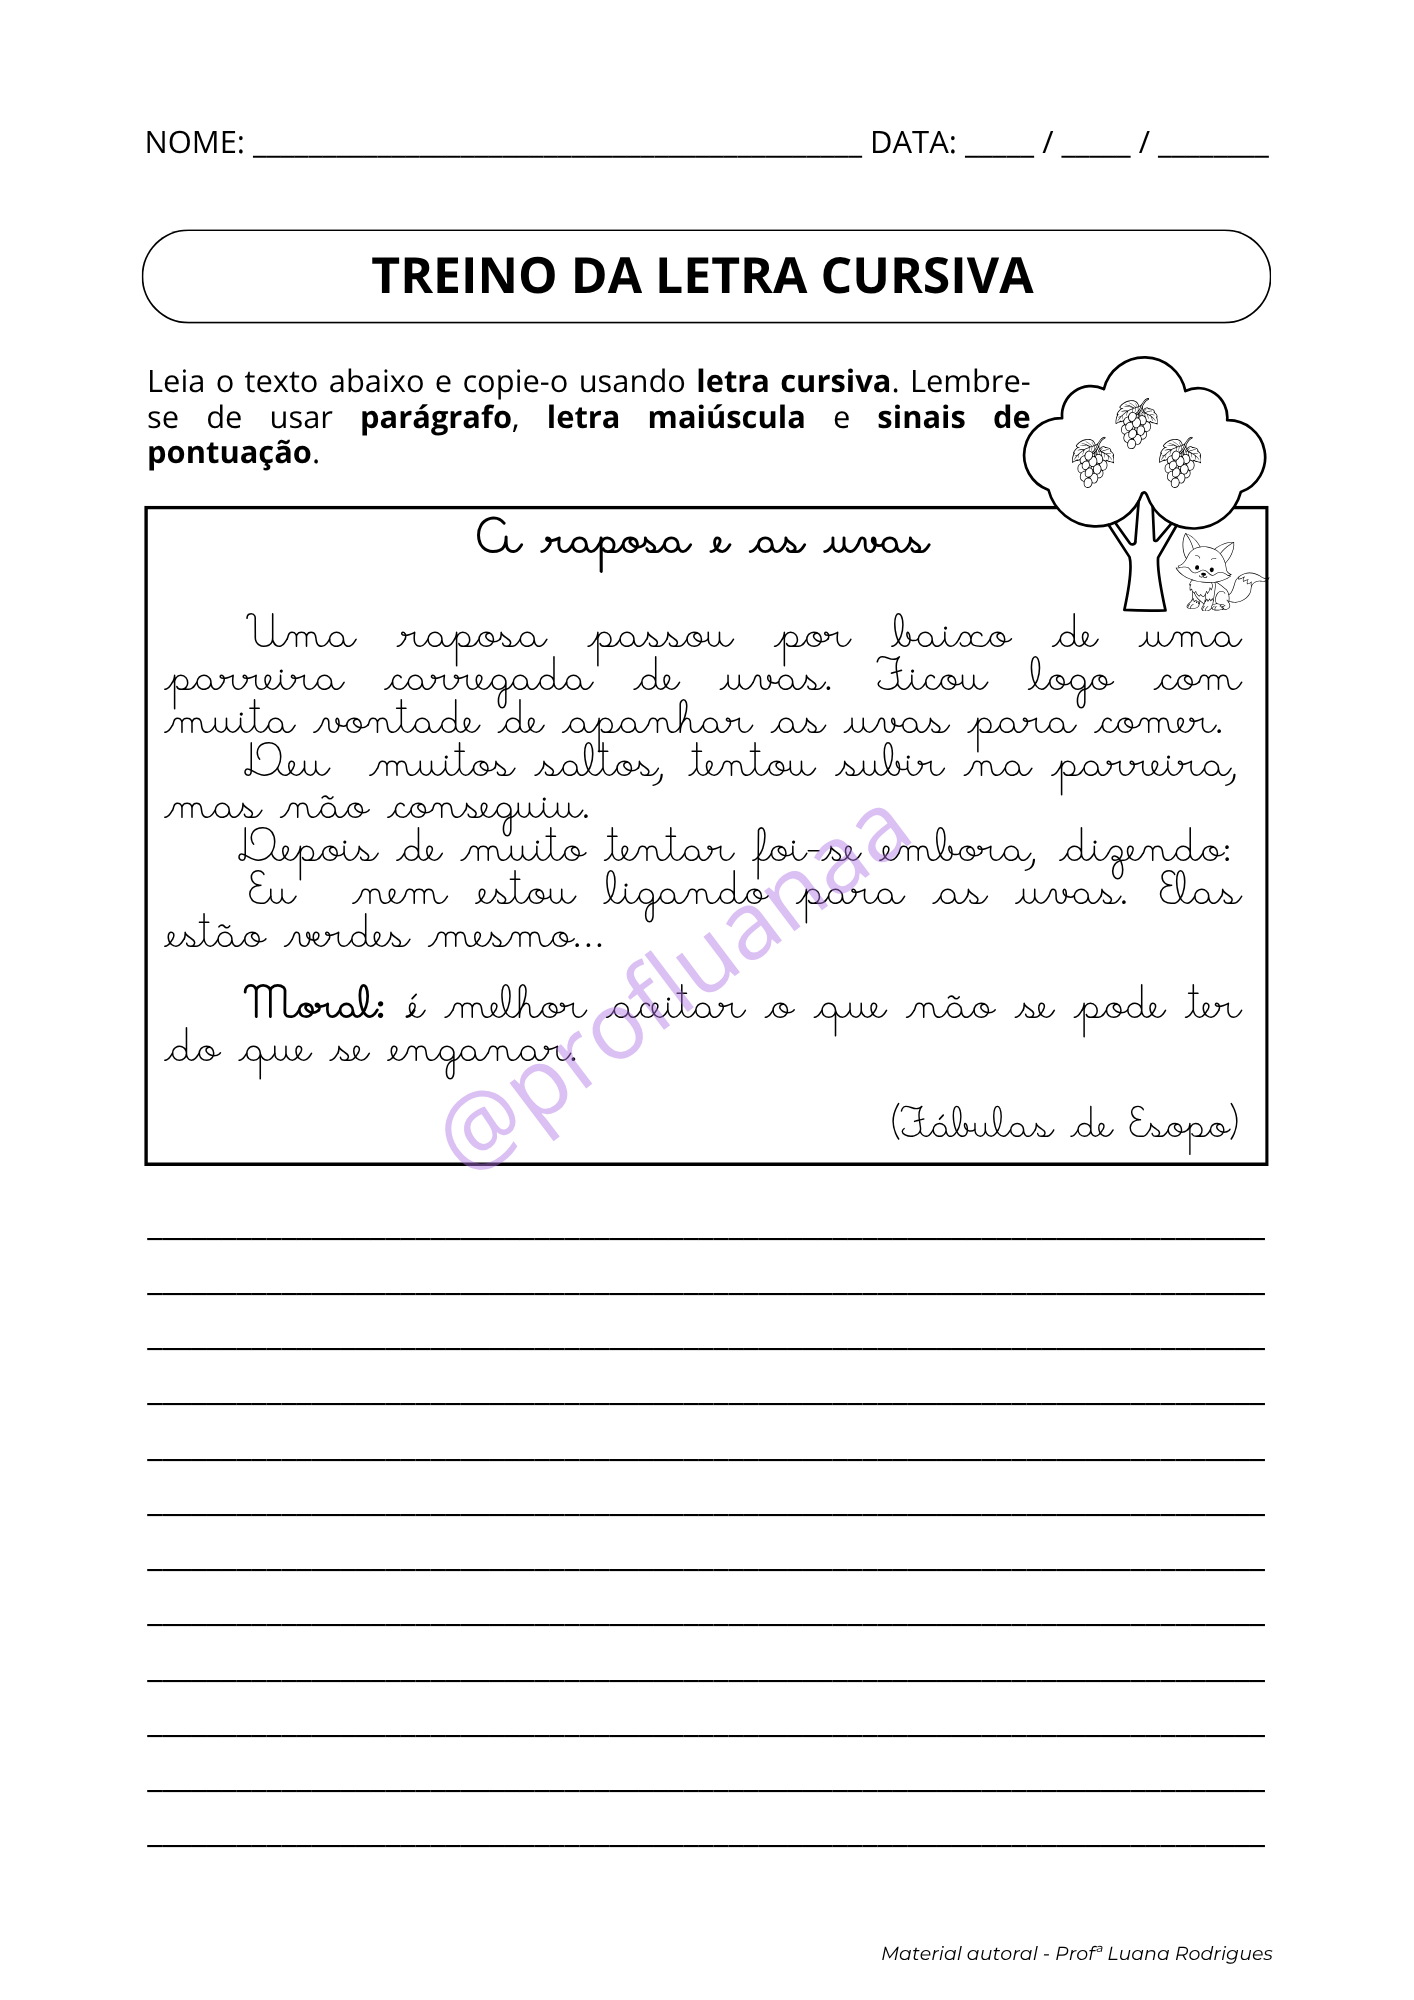 NOME: ____________________________________________ DATA: _____ / _____ / ________
TREINO DA LETRA CURSIVA
Leia o texto abaixo e copie-o usando letra cursiva. Lembre-
se de usar parágrafo, letra maiúscula e sinais de
pontuação.
A raposa e as uvas
Uma raposa passou por baixo de uma
parreira carregada de uvas. Ficou logo com
muita vontade de apanhar as uvas para comer.
Deu muitos saltos, tentou subir na parreira,
mas não conseguiu.
Depois de muito tentar foi-se embora, dizendo:
Eu nem estou ligando para as uvas. Elas
estão verdes mesmo...
Moral: é melhor aceitar o que não se pode ter
do que se enganar.
(Fábulas de Esopo)
@profluanaa
Material autoral - Profª Luana Rodrigues